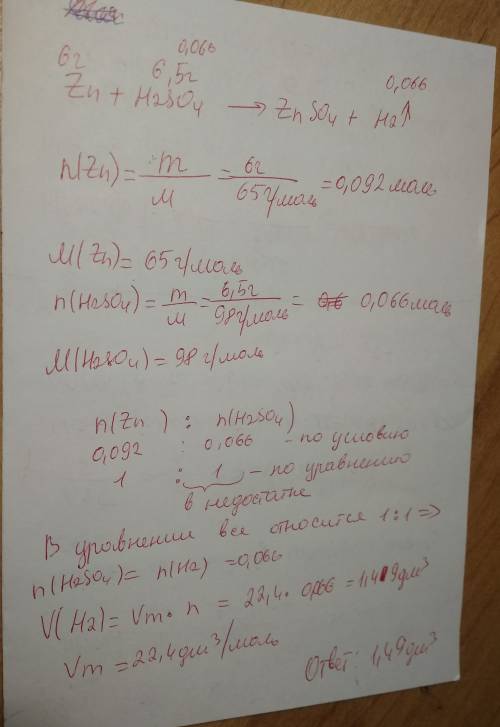 0,066
6г 6,5г 0,066
Zn + H2SO4 → ZnSO4 + H2↑
n(Zn) = m/M = 6г/65г/моль = 0,092 моль
M(Zn) = 65 г/моль
n(H2SO4) = m/M = 6,5г/98г/моль = 0,066 моль
M(H2SO4) = 98 г/моль
n(Zn) : n(H2SO4)
0,092 : 0,066 - по условию
1 : 1 - по уравнению
в недостатке
В уравнении все относится 1:1 =>
n(H2SO4) = n(H2) = 0,066
V(H2) = Vm · n = 22,4 · 0,066 = 1,49 дм³
Vm = 22,4 дм³/моль
Ответ: 1,49 дм³